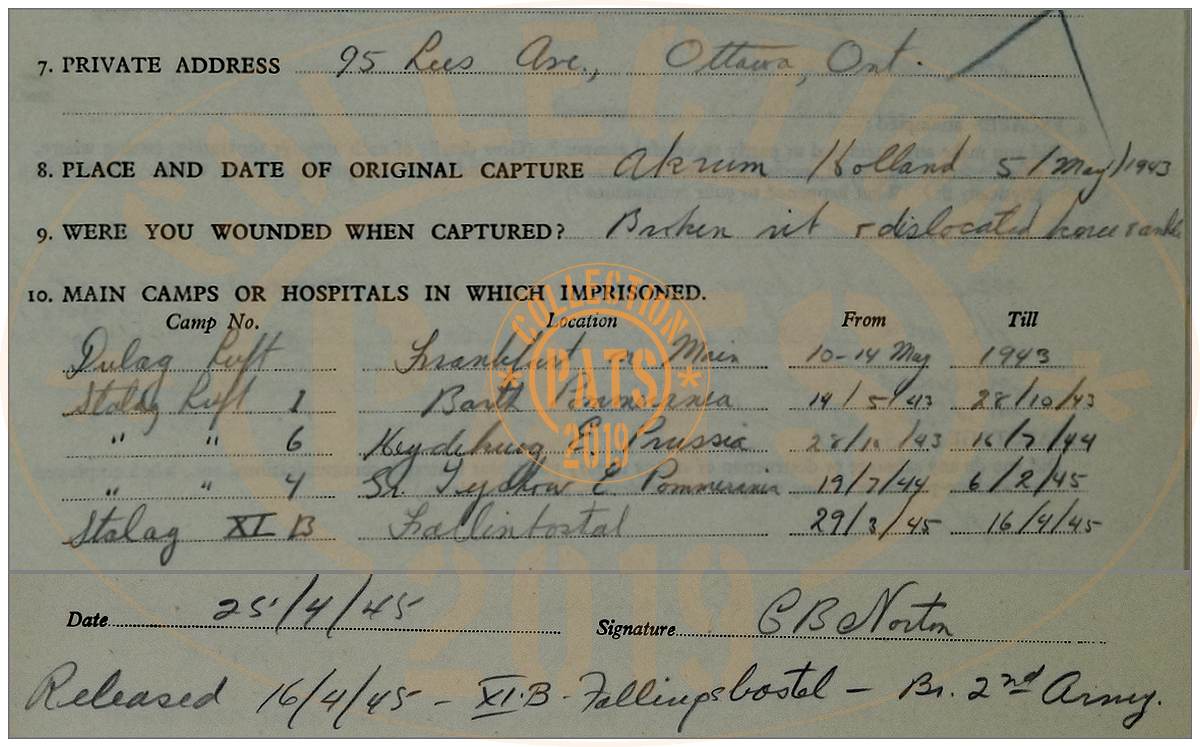 7. PRIVATE ADDRESS 95 Lees Ave., Ottawa, Ont.
8. PLACE AND DATE OF ORIGINAL CAPTURE Akrum Holland 5/May/1943
9. WERE YOU WOUNDED WHEN CAPTURED? Broken rib & dislocated knee & ankle
10. MAIN CAMPS OR HOSPITALS IN WHICH IMPRISONED.
Camp No. Location From Till
Dulag Luft Frankfurt Main 10-14 May 1943
Stalag Luft 1 Barth Pommernea 14/5/43 28/10/43
" " 6 Heydekrug E. Prussia 28/10/43 16/7/44
" " 4 Tychow E Pommerania 19/7/44 6/2/45
Stalag XI B Fallinbostal 29/3/45 16/4/45
COLLECTION
PATS
2019
Date 25/4/45 Signature C B Norton
Released 16/4/45 - XI.B - Fallingsbostel - Br. 2nd Army.